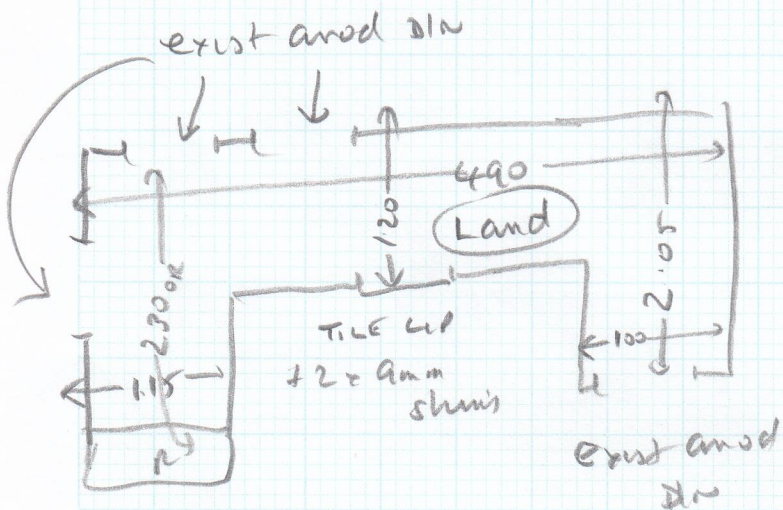 exist anod D/N
490
120
Land
2.05
230
OR
1.15
TILE LIP
+ 2 x 9mm
shims
100
R
exist anod
D/N